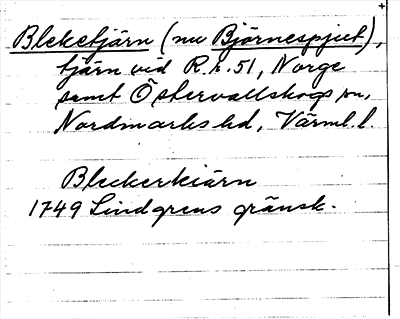 Bleketjärn (nu Björnespjut),
tjärn vid R.r. 51, Norge
samt Östervallskogs sn,
Nordmarks hd, Värml. l.
Bleckerkiärn
1749 Lindgrens gränsk.